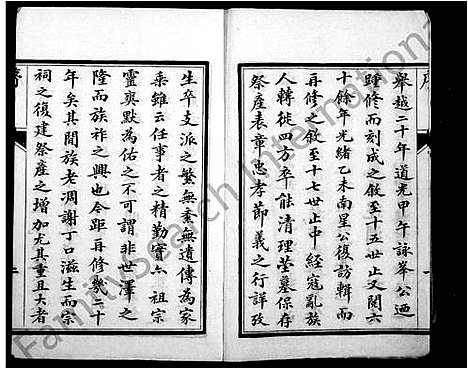 舉越二十年道光甲午詠峯公迺
踵修而刻成之敘至十五世止又閱六
十餘年光緒乙未南星公復訪輯而
再修之敘至十七世止中經寇亂族
人轉徙四方卒能清理塋墓保存
祭產表章忠孝節義之行詳攷
生卒支派之繁無紊無遺傳為家
乘雖云任事者之精勤實亦祖宗
靈爽默為佑之不可謂非世澤之
隆而族祚之興也今距再修幾三十
年矣其間族老凋謝丁口滋生而宗
祠之復建祭產之增加尤其重且大者
序
二
FamilySearch International